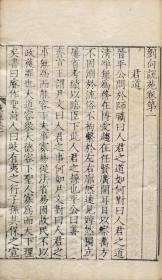 劉向說苑卷第
君道
晉平公問於師曠曰人君之道如何對曰人君之道
清淨無為務在博愛趨在任賢廣開耳目以察萬方
不固溺於流俗不拘繫於左右廓然遠見踔然獨立
屢省考績以臨臣下此人君之操也平公曰善
齊宣王謂尹文曰人君之事何如尹文對曰人君之
事無為而能容下夫事寡易從法省易因故民不以
政獲罪也大道容衆大德容下聖人寡為而天下理
矣書曰睿作聖詩人曰岐有夷之行子孫其保之宣